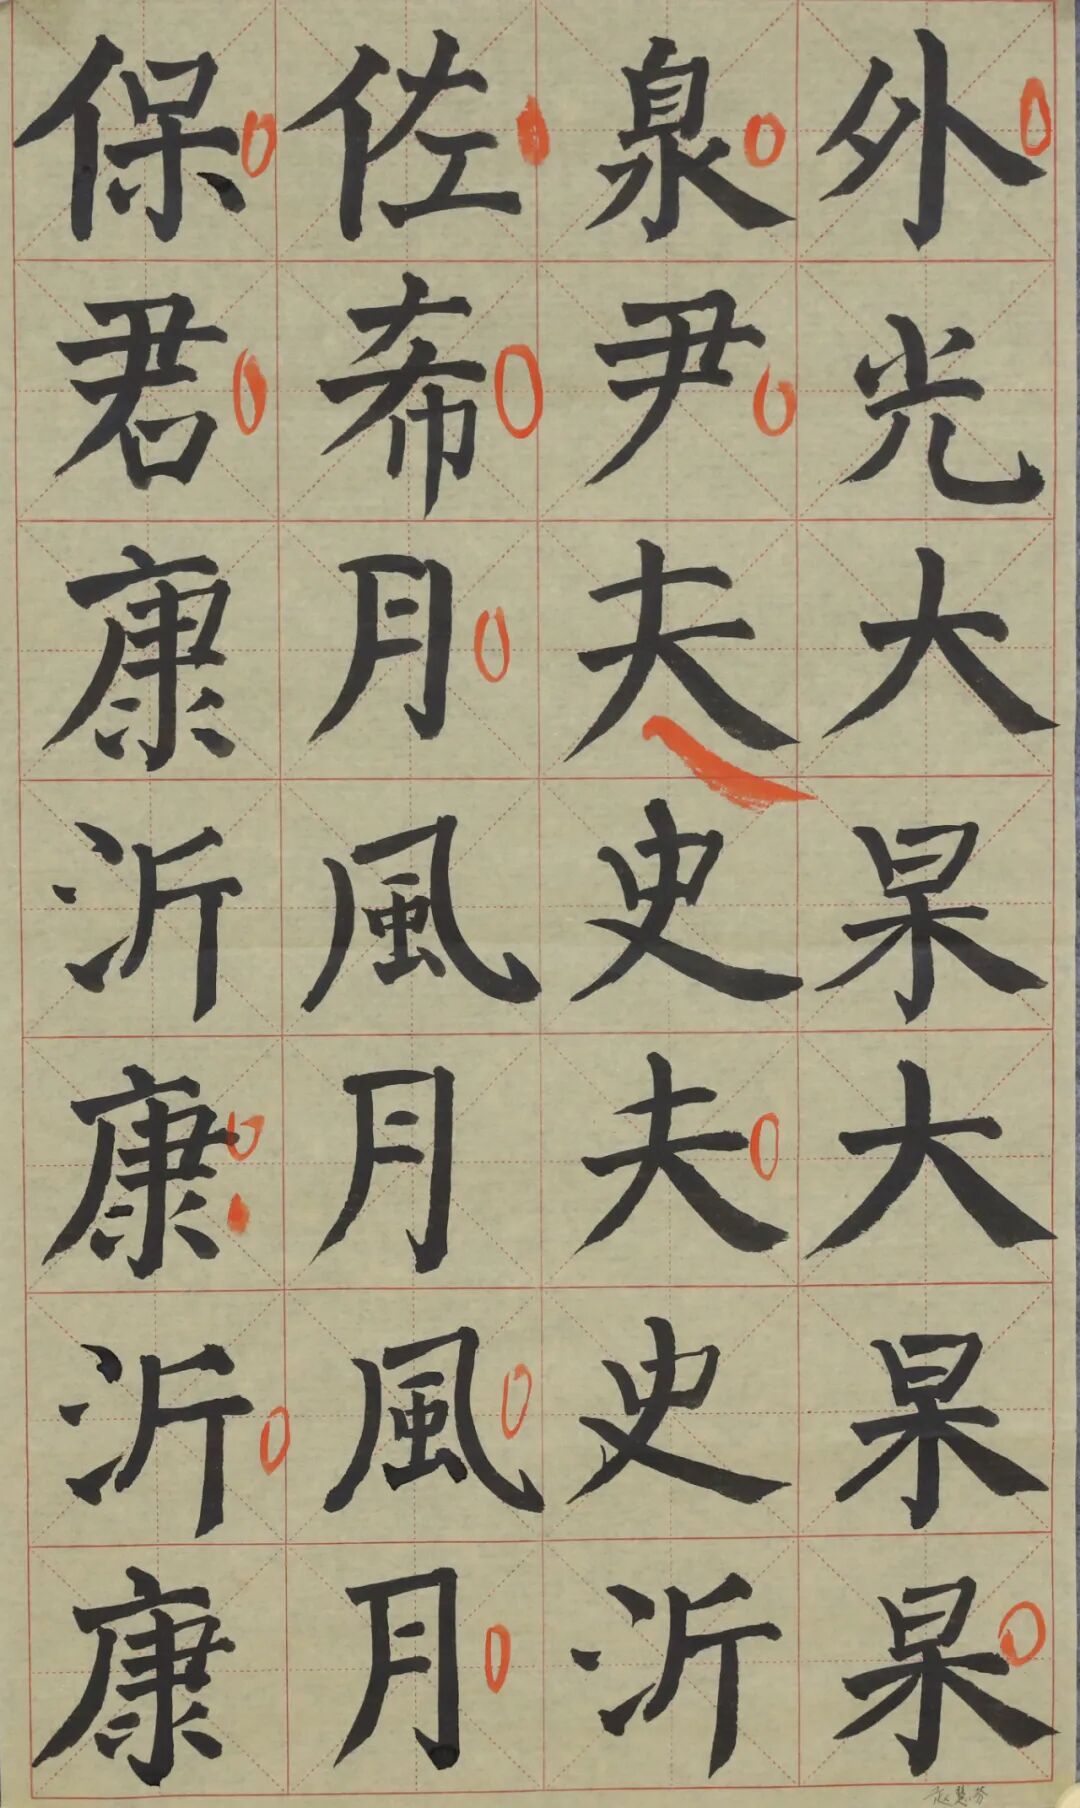 外光大杲大杲杲
泉尹夫史夫史沂
佐希月風月風月
保君康沂康沂康
赵慧芬